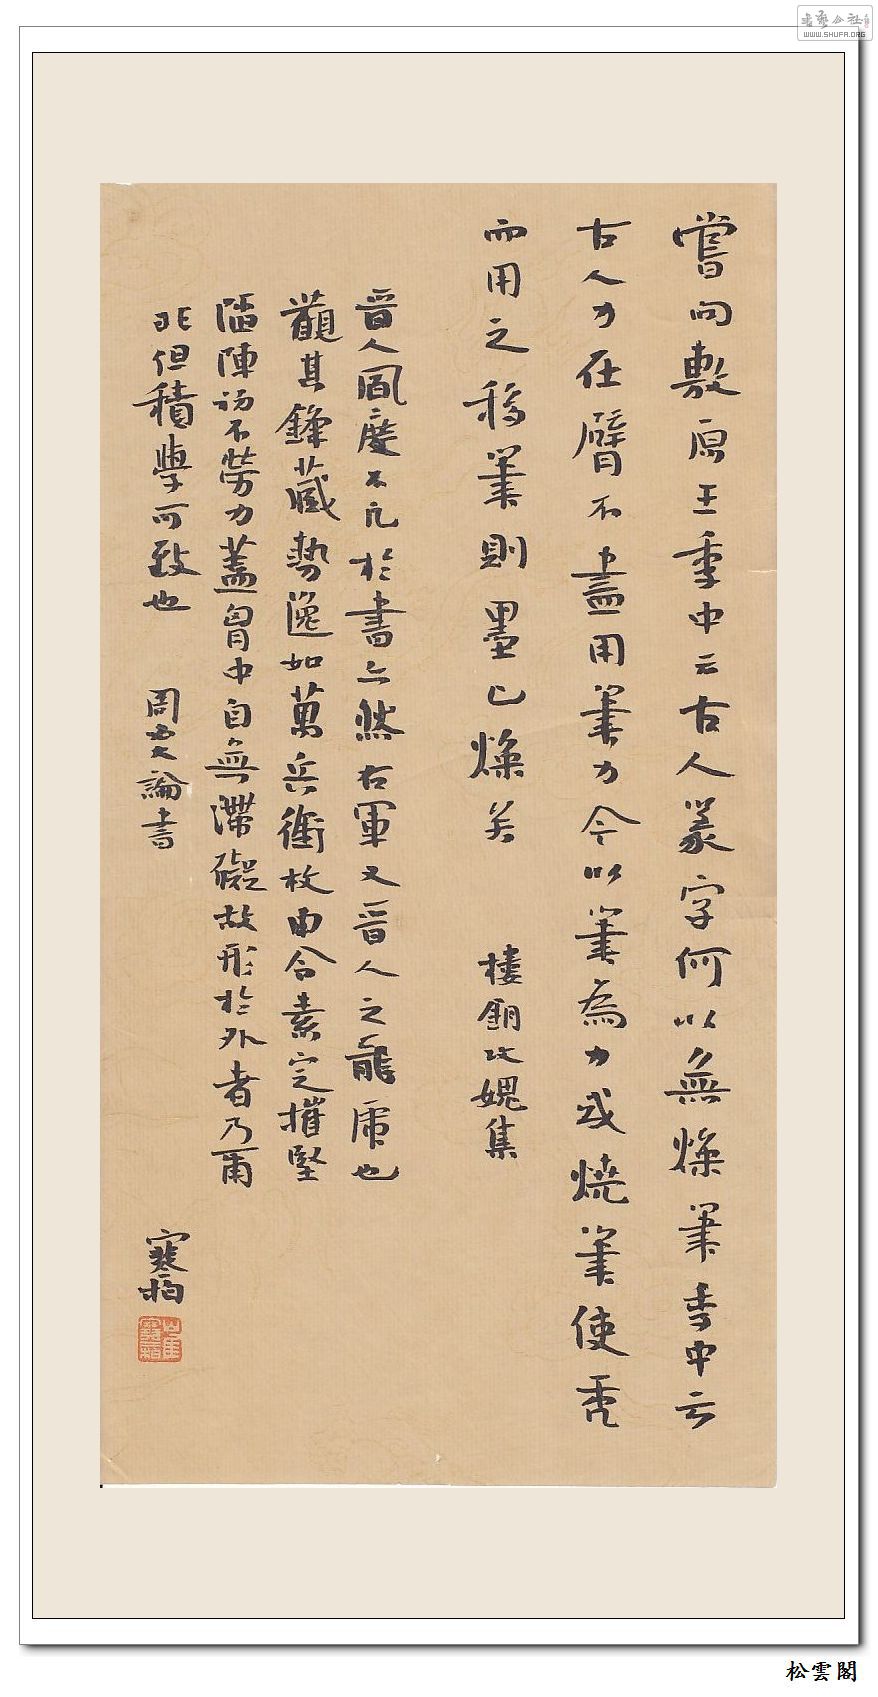 書藝公社
WWW.SHUFA.ORG
嘗向敷原王季中云古人篆字何以無燥筆季中云
古人力在臂不盡用筆力今以筆為力或燒筆使禿
而用之移筆則墨已燥矣
樓鑰攻媿集
晉人風度不凡於書亦然右軍又晉人之龍虎也
觀其鋒藏勢逸如萬兵銜枚申合素定摧堅
陷陣初不勞力蓋胷中自無滯礙故形於外者乃爾
非但積學可致也
周必大論書
寒柏
松雲閣